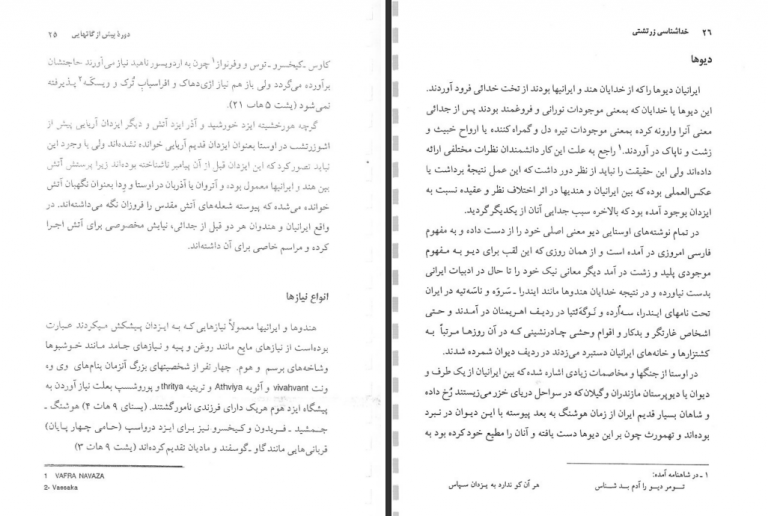 دورهٔ پیش از گاتهایی ۲۵
کاوس ـ کیخسرو ـ توس و وفرنواز۱ چون به اردویسور ناهید نیاز می‌آورند حاجتشان
برآورده می‌گردد ولی باز هم نیاز اژی‌دهاک و افراسیاب تُرک و ویسکَه۲ پذیرفته
نمی‌شود (یشت ۵ هات ۲۱).
گرچه هورخشیته ایزد خورشید و آذر ایزد آتش و دیگر ایزدان آریایی پیش از
اشوزرتشت در اوستا بعنوان ایزدان قدیم آریایی خوانده نشده‌اند ولی با وجود این
نباید تصور کرد که این ایزدان قبل از آن پیامبر ناشناخته بوده‌اند زیرا پرستش آتش
بین هند و ایرانیها معمول بوده و آتروان یا آذربان در اوستا و وِدا بعنوان نگهبان آتش
خوانده می‌شده که پیوسته شعله‌های آتش مقدس را فروزان نگه می‌داشته‌اند. در
واقع ایرانیان و هندوان هر دو قبل از جدائی، نیایش مخصوصی برای آتش اجرا
کرده و مراسم خاصی برای آن داشته‌اند.
انواع نیازها
هندوها و ایرانیها معمولاً نیازهایی که به ایزدان پیشکش میکردند عبارت
بوده‌است از نیازهای مایع مانند روغن و پیه و نیازهای جامد مانند خوشبوها
وشاخه‌های برسم و هوم. چهار نفر از شخصیتهای بزرگ آنزمان بنام‌های وی وه
ونت vivahvant و آثویه Athviya و تریتیه thritya وپوروشسپ بعلت نیاز آوردن به
پیشگاه ایزد هوم هریک دارای فرزندی نامور گشتند. (یسنای ۹ هات ۴) هوشنگ ـ
جمشید ـ فریدون و کیخسرو نیز برای ایزد درواسپ (حامی چهار پایان)
قربانی‌هایی مانندگاو ـ گوسفند و مادیان تقدیم کرده‌اند (یشت ۹ هات ۳)
1 VAFRA NAVAZA
2- Vaesaka
۲۶ خداشناسی زرتشتی
دیوها
ایرانیان دیوها را که از خدایان هند و ایرانیها بودند از تخت خدائی فرود آوردند.
این دیوها یا خدایان که بمعنی موجودات نورانی و فروغمند بودند پس از جدائی
معنی آنرا وارونه کرده بمعنی موجودات تیره دل و گمراه کننده یا ارواح خبیث و
زشت و ناپاک در آوردند.۱ راجع به علت این کار دانشمندان نظرات مختلفی ارائه
داده‌اند ولی این حقیقت را نباید از نظر دور داشت که این عمل نتیجهٔ برداشت یا
عکس‌العملی بوده که بین ایرانیان و هندیها در اثر اختلاف نظر و عقیده نسبت به
ایزدان بوجود آمده بود که بالاخره سبب جدایی آنان از یکدیگر گردید.
در تمام نوشته‌های اوستایی دیو معنی اصلی خود را از دست داده و به مفهوم
فارسی امروزی در آمده است و از همان روزی که این لقب برای دیو به مفهوم
موجودی پلید و زشت در آمد دیگر معانی نیک خود را تا حال در ادبیات ایرانی
بدست نیاورده و در نتیجه خدایان هندوها مانند ایندرا ـ سَروَه و ناسَه‌تیه در ایران
تحت نامهای ایندرا، سه‌اُردِه و نوگه‌ئتیا در ردیف اهریمنان در آمدند و حتی
اشخاص غارتگر و بدکار و اقوام وحشی چادرنشینی که در آن روزها مرتباً به
کشتزارها و خانه‌های ایرانیان دستبرد می‌زدند در ردیف دیوان شمرده شدند.
در اوستا از جنگها و مخاصمات زیادی اشاره شده که بین ایرانیان از یک طرف و
دیوان یا دیوپرستان مازندران وگیلان که در سواحل دریای خزر می‌زیستند رُخ داده
و شاهان بسیار قدیم ایران از زمان هوشنگ به بعد پیوسته با این دیوان در نبرد
بوده‌اند و تهمورث چون بر این دیوها دست یافته و آنان را مطیع خود کرده بود به
۱ ـ در شاهنامه آمده:
تـومر دیـو را آدم بـد شناس هر آن کو ندارد به یزدان سپاس